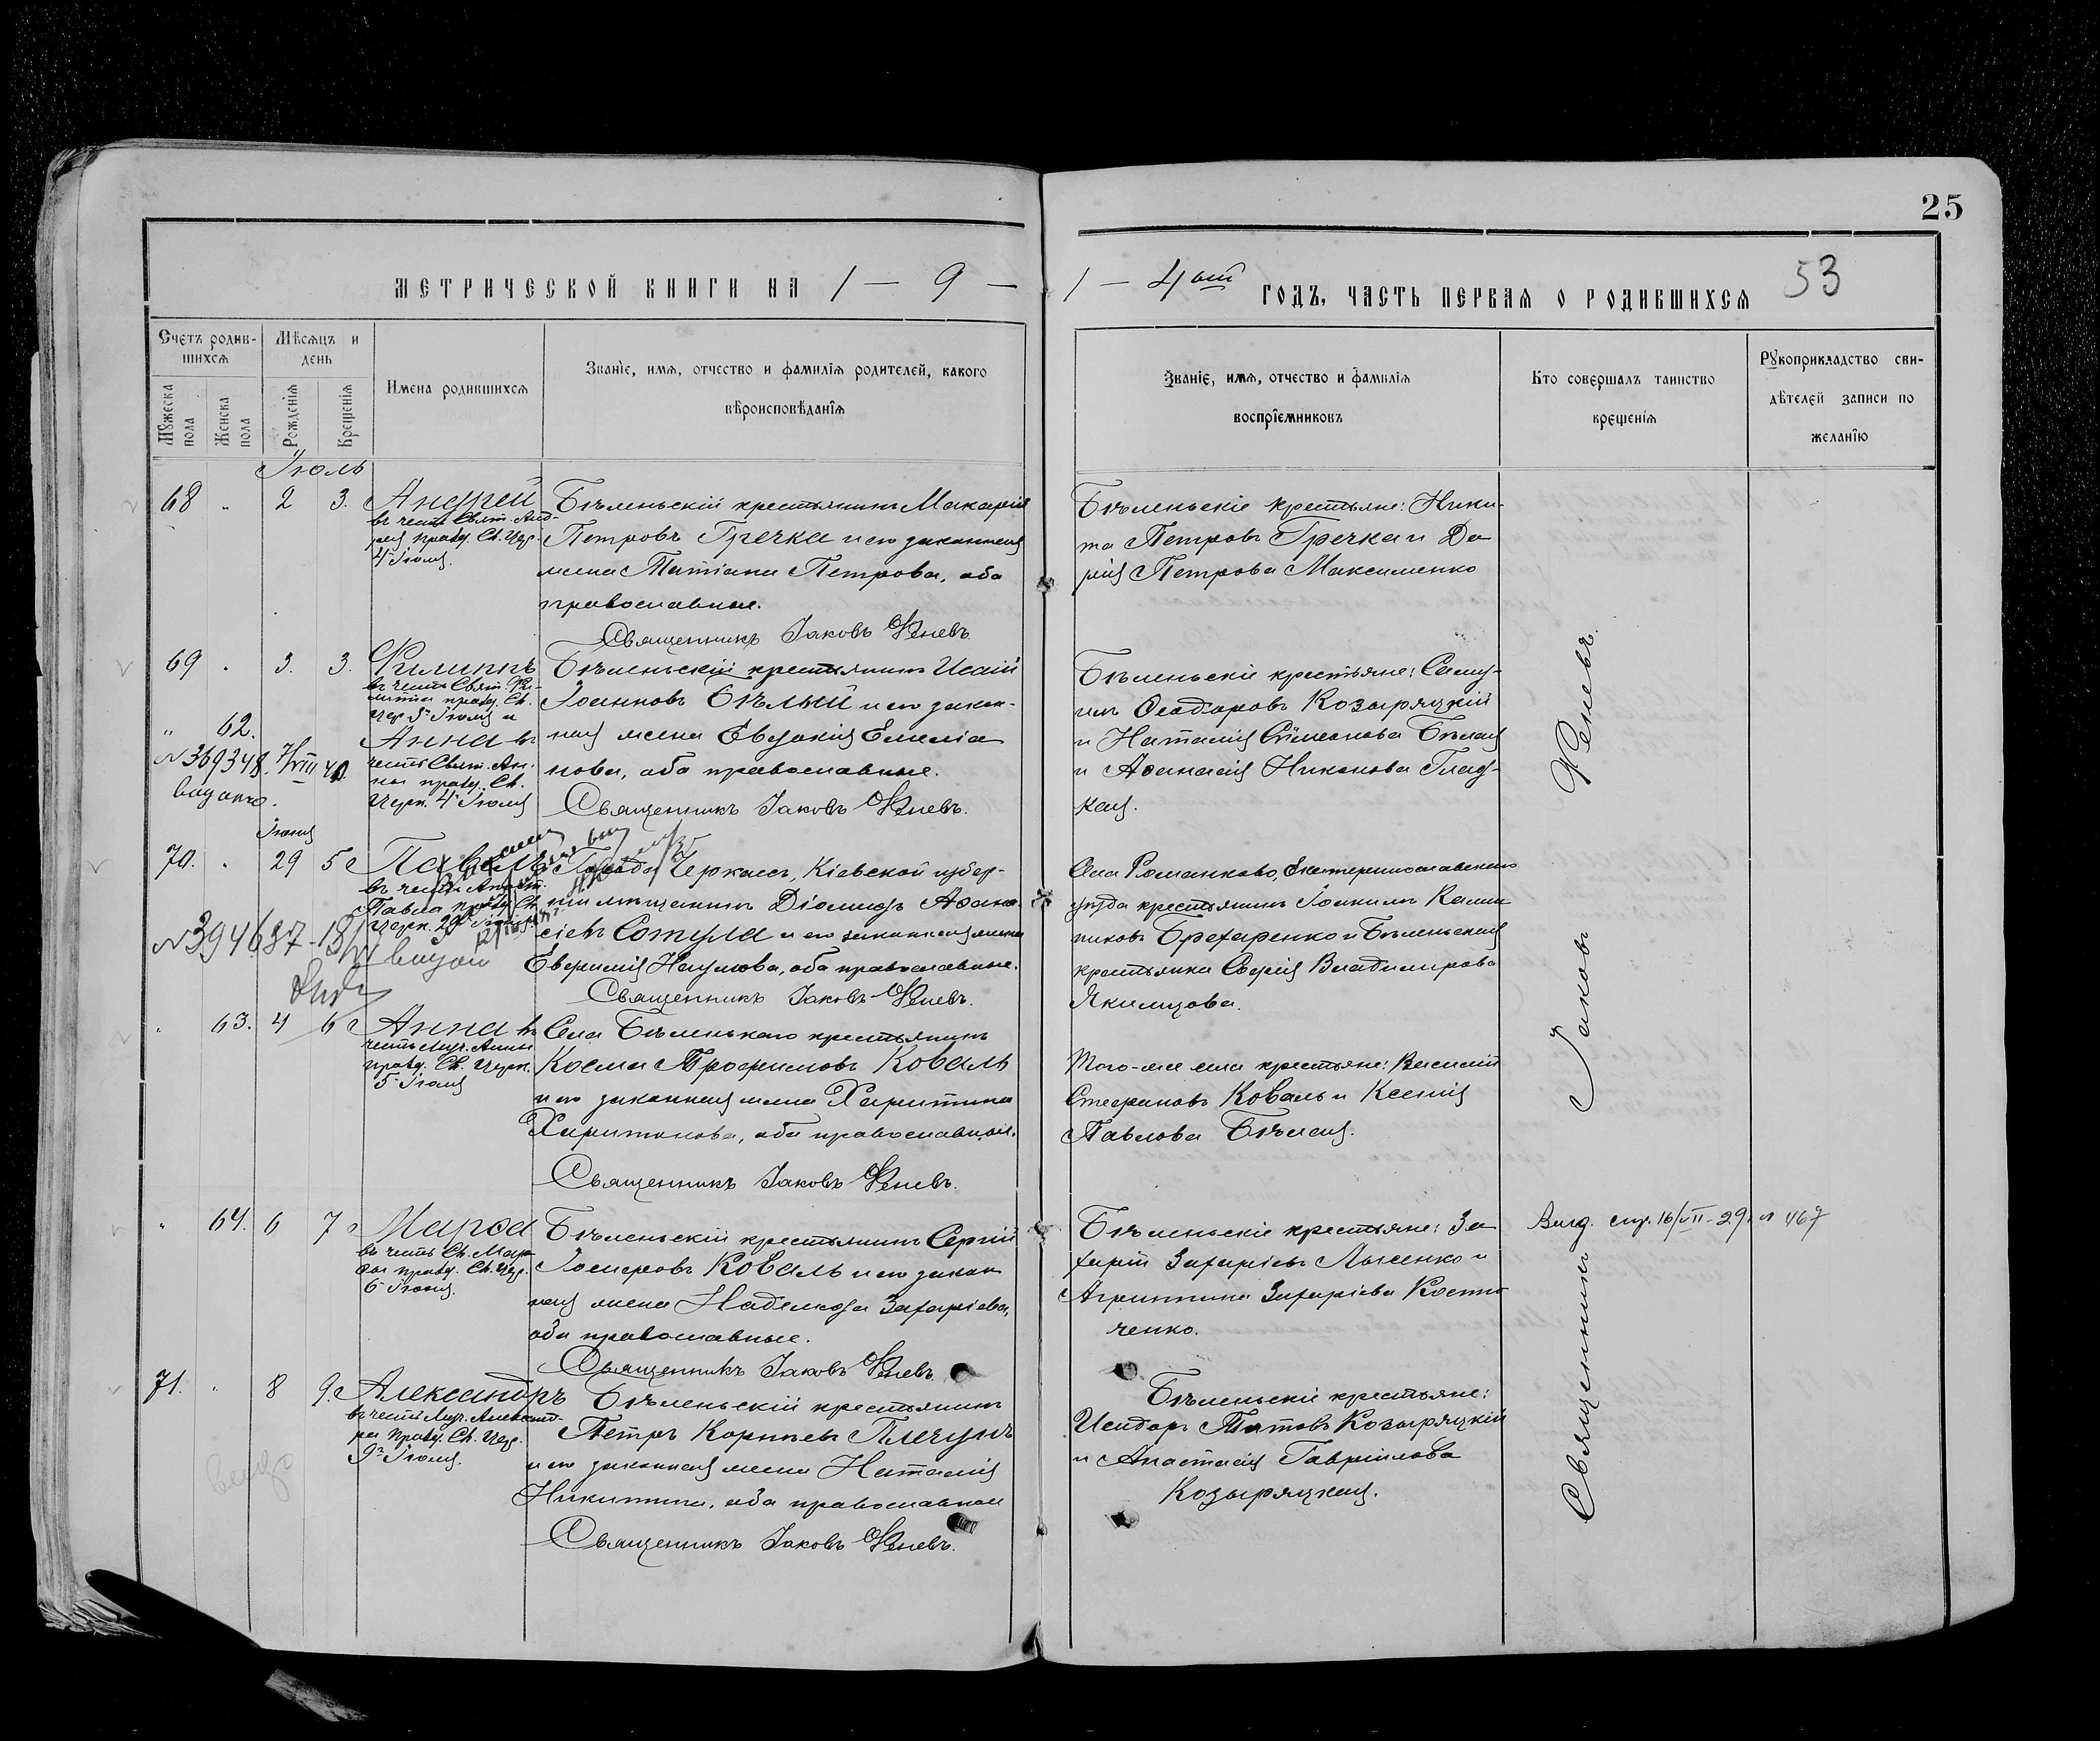 25
МЕТРИЧЕСКОЙ КНИГИ НА 1 — 9 —
1 — 4ый ГОДЪ, ЧАСТЬ ПЕРВАЯ О РОДИВШИХСЯ
53
Счетъ родив-
шихся
Мѣсяцъ и
день
Мужеска
пола
Женска
пола
Рожденія
Крещенія
Имена родившихся
Званіе, имя, отчество и фамилія родителей, какого
вѣроисповѣданія
Званіе, имя, отчество и фамилія
воспріемниковъ
Кто совершалъ таинство
крещенія
Рукоприкладство сви-
дѣтелей записи по
желанію
Іюль
68 " 2 3. Андрей
въ честь Свят. Анд-
рея празд. Св. Цер.
4 Іюля.
Бѣленьскій крестьянинъ Макарій
Петровъ Гречка и его законная
жена Татіана Петрова, оба
православные.
Священникъ Іаковъ Феневъ
Бѣленьскіе крестьяне: Ники-
та Петровъ Гречка и Да
рія Петрова Максименко
69 " 3. 3. Филиппъ
въ честь Свят. Фи-
липпа празд. Св.
Цер 3 Іюля и
" 62.
Анна въ
честь Свят. Ан-
ны празд. Св.
Церк. 4 Іюля
№ 369348. 7/VIII 40.
видано.
Бѣленьскій крестьянинъ Исаій
Іоанновъ Бѣлый и его закон-
ная жена Евдокія Емелiа
нова, оба православные.
Священникъ Іаковъ Феневъ.
Бѣленьскіе крестьяне: Саму-
илъ Ѳеодоровъ Козыряцкій
и Наталія Сѵмеонова Бѣлая
и Аѳанасія Никонова Глад-
кая.
Іюня
70. " 29 5 Павелъ
въ честь Апост.
Павла празд. Св.
Церк. 29 Іюня
№ 394687 - видан
Города Черкасъ, Кіевской губер-
ніи мѣщанинъ Діомидъ Аѳана-
сіевъ Сотула и его законная жена
Евфимія Наумова, оба православные.
Священникъ Іаковъ Феневъ.
Села Романково, Екатеринославскаго
уѣзда крестьянинъ Іоакимъ Калин
никовъ Брехаренко и Бѣленьская
крестьянка Софія Владимирова
Якимцова.
" 63. 4 6 Анна въ
честь Муч. Анны
празд. Св. Церк.
5 Іюля
Села Бѣленькаго крестьянинъ
Косма Трофимовъ Коваль
и его законная жена Харитина
Харитонова, оба православные.
Священникъ Іаковъ Феневъ.
Того-же села крестьяне: Василій
Стефановъ Коваль и Ксенія
Павлова Бѣлая.
" 64. 6 7 Марѳа
въ честь Св. Мар-
ѳы празд. Св. Цер.
6 Іюля.
Бѣленьскій крестьянинъ Сергій
Іосифовъ Коваль и его закон
ная жена Надежда Захаріева,
оба православные.
Священникъ Іаковъ Феневъ
Бѣленьскіе крестьяне: За
харій Захаріевъ Лысенко и
Агриппина Захаріева Кости
ченко.
Вид. 16/VII - 29 № 467
71. " 8 9. Александръ
въ честь Муч. Александ-
ра празд. Св. Цер.
9 Іюля.
Бѣленьскій крестьянинъ
Петръ Корніевъ Плечунъ
и его законная жена Наталія
Никитина, оба православные
Священникъ Іаковъ Феневъ.
Бѣленьскіе крестьяне:
Исидоръ Титовъ Козыряцкій
и Анастасія Гавріилова
Козыряцкая.
Священникъ Іаковъ Феневъ